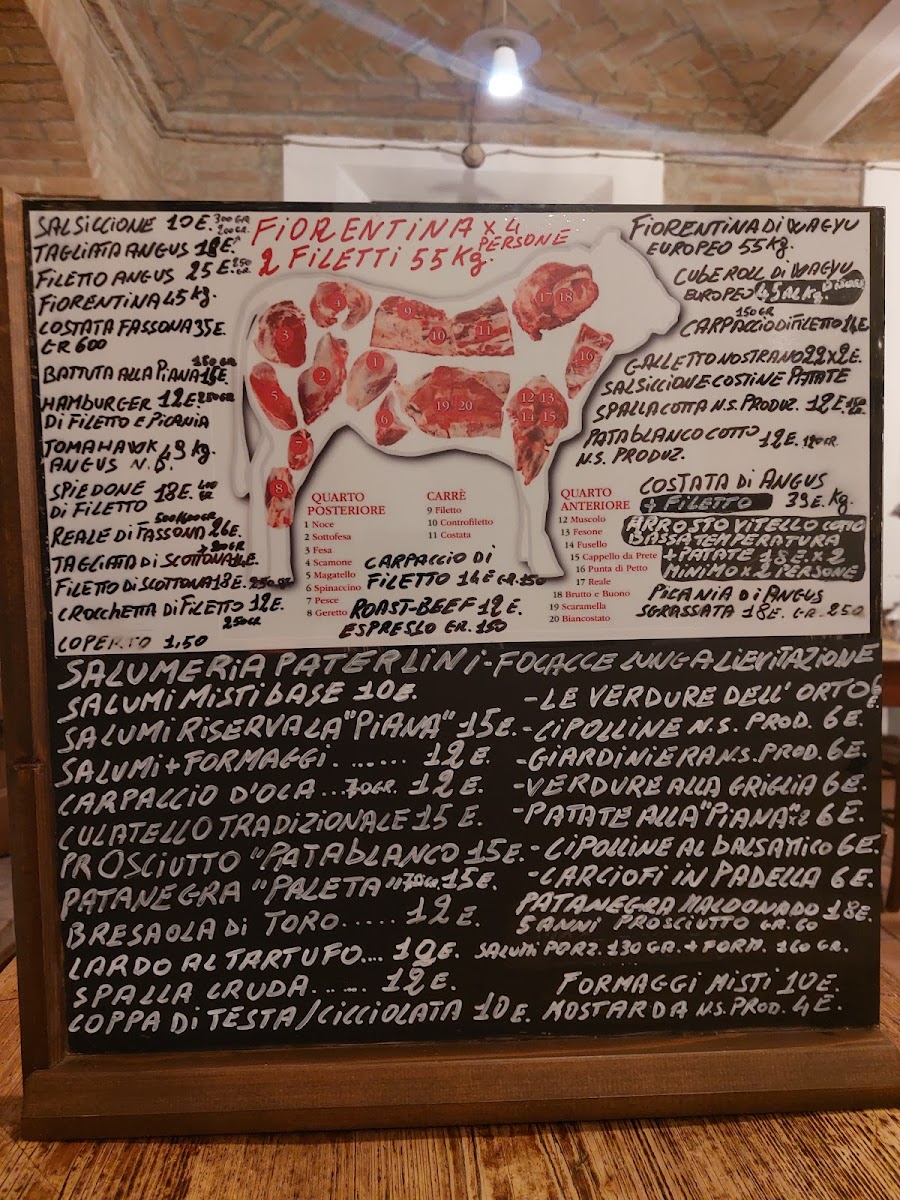 SALSICCIONE 10E. 300GR 200GR.
TAGLIATA ANGUS 18E.
FILETTO ANGUS 25E. 250 GR
FIORENTINA 45 Kg.
COSTATA FASSONA 35E.
GR 600
BATTUTA ALLA PIANA 15E. 150GR
HAMBURGER 12E. 250GR
DI FILETTO E PICANIA
TOMAHAWK 49 Kg.
ANGUS N.B.
SPIEDONE 18E. 400 GR
DI FILETTO
REALE DI FASSONA 26E. 500/600GR
TAGLIATA DI SCOTTONA
FILETTO DI SCOTTONA 18E. 250GR
CROCCHETTA DI FILETTO 12E.
250GR
COPERTO 1,50
FIORENTINA X 4
PERSONE
2 FILETTI 55 Kg.
3
4
9
10
11
17 18
16
1
2
5
6
7
8
19 20
12 13
14 15
QUARTO
POSTERIORE
1 Noce
2 Sottofesa
3 Fesa
4 Scamone
5 Magatello
6 Spinaccino
7 Pesce
8 Geretto
CARRÈ
9 Filetto
10 Controfiletto
11 Costata
QUARTO
ANTERIORE
12 Muscolo
13 Fesone
14 Fusello
15 Cappello da Prete
16 Punta di Petto
17 Reale
18 Brutto e Buono
19 Scaramella
20 Biancostato
CARPACCIO DI
FILETTO 14E GR.150
ROAST-BEEF 12E.
ESPRESSO GR. 150
FIORENTINA DI WAGYU
EUROPEO 55 Kg.
CUBEROLL DI WAGYU
EUROPEO 45 AL Kg.
150GR
CARPACCIO DI FILETTO 14E.
GALLETTO NOSTRANO 22X2E.
SALSICCIONE COSTINE PATATE
SPALLA COTTA N.S. PRODUZ. 12E. 150 GR
PATABLANCO COTTO 12E. 120GR.
N.S. PRODUZ.
COSTATA DI ANGUS
+ FILETTO 39E. Kg.
ARROSTO VITELLO COTTO
BASSA TEMPERATURA
+ PATATE 18E. X 2
MINIMO X 2 PERSONE
PICANIA DI ANGUS
SGRASSATA 18E. GR. 250
SALUMERIA PATERLINI - FOCACCE LUNGA LIEVITAZIONE
SALUMI MISTI BASE 10E.
SALUMI RISERVA LA "PIANA" 15E.
SALUMI + FORMAGGI ....... 12E.
CARPACCIO D'OCA ...70GR. 12E.
CULATELLO TRADIZIONALE 15E.
PROSCIUTTO "PATABLANCO 15E.
PATANEGRA "PALETA" 15E.
BRESAOLA DI TORO..... 12E.
LARDO AL TARTUFO... 10E.
SPALLA CRUDA...... 12E.
COPPA DI TESTA/CICCIOLATA 10E.
- LE VERDURE DELL'ORTO 6E.
- CIPOLLINE N.S. PROD. 6E.
- GIARDINIERA N.S. PROD. 6E.
- VERDURE ALLA GRIGLIA 6E.
- PATATE ALLA "PIANA" X2 6E.
- CIPOLLINE AL BALSAMICO 6E.
- CARCIOFI IN PADELLA 6E.
PATANEGRA MALDONADO 18E.
5 ANNI PROSCIUTTO GR. 60
SALUMI PORZ. 130 GR. + FORM. 160 GR.
FORMAGGI MISTI 10E.
MOSTARDA N.S. PROD. 4E.